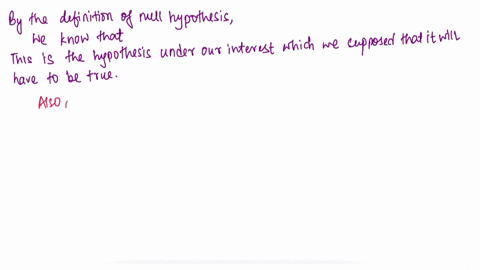 By the definition of null hypothesis,
We know that
This is the hypothesis under our interest which we supposed that it will
have to be true.
Also,